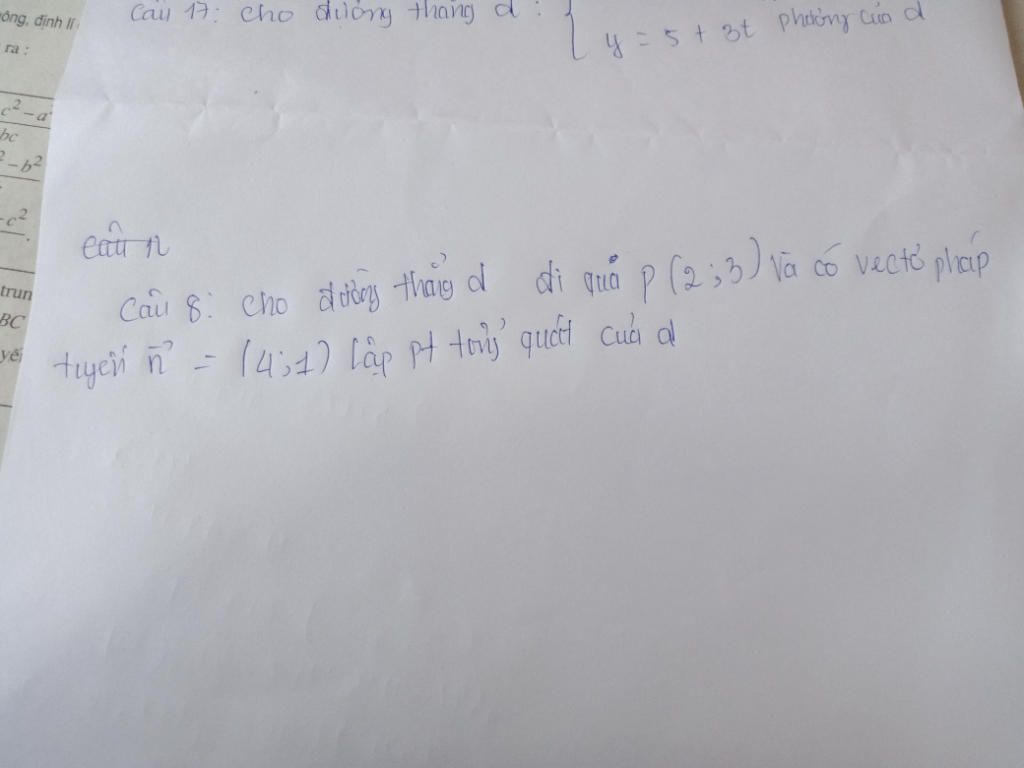 ông, định lí
ra :
c² − a²
bc
² − b²
− c²
trun
BC
yế
Câu 17: cho đường thẳng d : {
y = 5 + 3t phương của d
Câu n
Câu 8: cho đường thẳng d đi quả p (2;3) và có vectơ pháp
tuyến n⃗ = (4;1) lập pt tổng quát của d